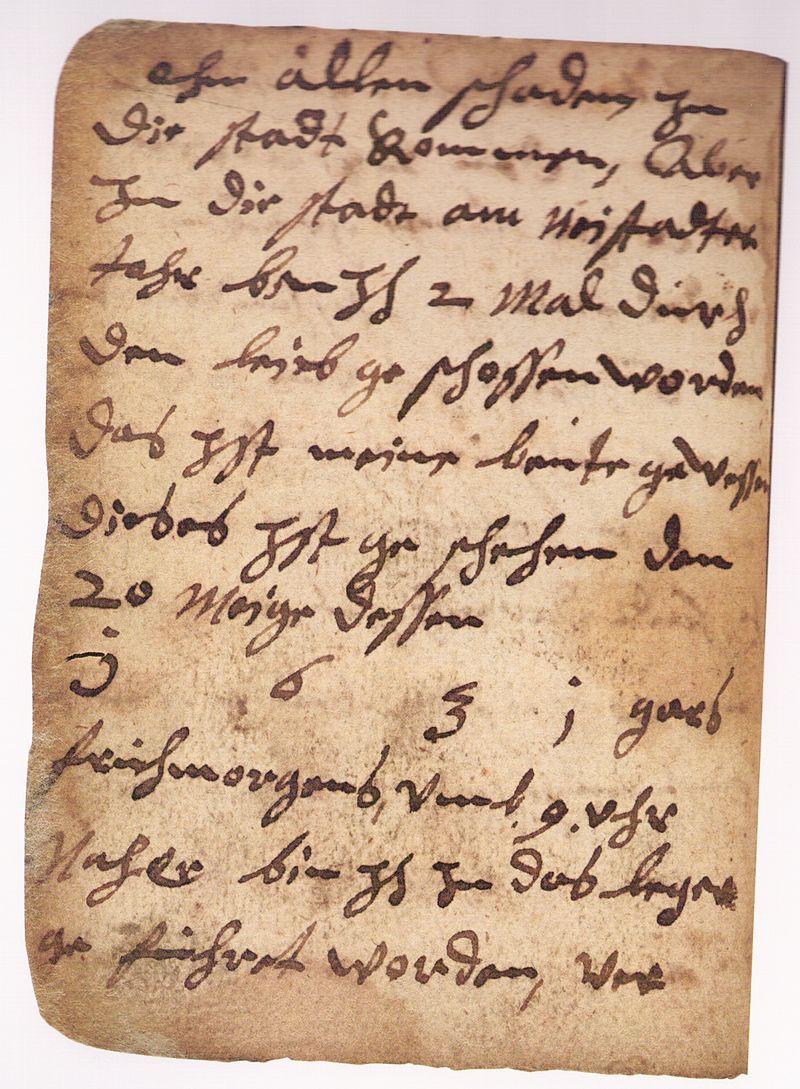 ohn allen schaden, in
Die stadt kommen, Aber
in Die stadt am Neistadter
tohr bin ich 2 Mal durch
Den leieb ge schossen worden
Das ist meine beute ge wessen
Dieses ist ge schehen den
20 Meige dessen
j 6 3 j gars
frichmorgens, vmb. 9. vhr
Naher bin ich in das leger
ge fiehret worden, ver